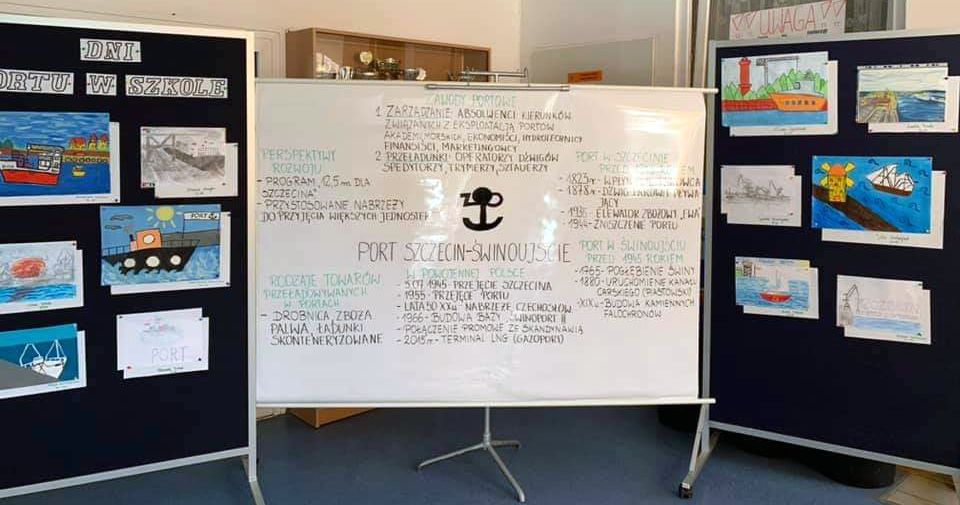 DNI
PORTU W SZKOLE
UWAGA
ZAWODY PORTOWE
1. ZARZĄDZANIE: ABSOLWENCI KIERUNKÓW
ZWIĄZANYCH Z EKSPLOATACJĄ PORTÓW
AKADEMII MORSKICH, EKONOMIŚCI, HYDROTECHNICY
FINANSIŚCI, MARKETINGOWCY
2. PRZEŁADUNKI: OPERATORZY DŹWIGÓW
SPEDYTORZY, TRYMERZY, SZTAUERZY
PERSPEKTYWY
ROZWOJU
- PROGRAM „12,5 m DLA
SZCZECINA"
- PRZYSTOSOWANIE NABRZEŻY
DO PRZYJĘCIA WIĘKSZYCH JEDNOSTEK
PORT W SZCZECINIE
PRZED
- 1823r -
- 1878r - DŹWIG PAROWY PŁYWA
JĄCY
- 1935 - ELEWATOR ZBOŻOWY „EWA"
- 1944 - ZNISZCZENIE PORTU
PORT SZCZECIN-ŚWINOUJŚCIE
RODZAJE TOWARÓW
PRZEŁADOWYWANYCH
W PORTACH
- DROBNICA, ZBOŻA
PALIWA, ŁADUNKI
SKONTENERYZOWANE
W POWOJENNEJ POLSCE
- 5.07.1945 PRZEJĘCIE SZCZECINA
- 1955 - PRZEJĘCIE PORTU
- LATA 50 XXw. - NABRZEŻE CZECHOSŁOW.
- 1966 - BUDOWA BAZY „ŚWINOPORT II
- POŁĄCZENIE PROMOWE ZE SKANDYNAWIĄ
- 2015r - TERMINAL LNG (GAZOPORT)
PORT W ŚWINOUJŚCIU
PRZED 1945 ROKIEM
- POGŁĘBIENIE ŚWINY
- 1880 - URUCHOMIENIE KANAŁU
CARSKIEGO (PIASTOWSKI)
- XIXw - BUDOWA KAMIENNYCH
FALOCHRONÓW
PORT